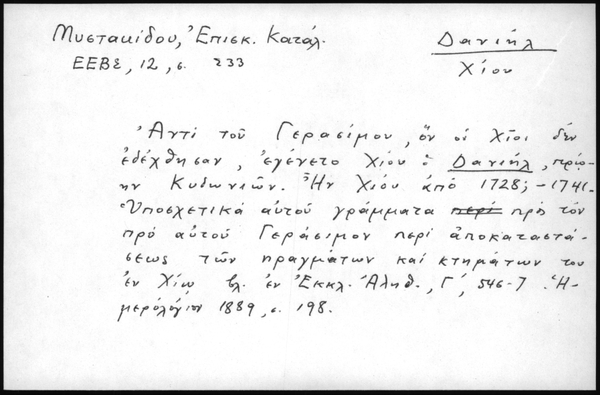 Μυστακίδου, Ἐπισκ. Κατάλ.
ΕΕΒΣ, 12, σ. 233
Δανιήλ
Χίου
Ἀντί τοῦ Γερασίμου, ὅν οἱ Χῖοι δέν
ἐδέχθησαν, ἐγένετο Χίου ὁ Δανιήλ, πρώ-
ην Κυδωνιῶν. Ἦν Χίου ἀπό 1728; - 1741.
Ὑποσχετικά αὐτοῦ γράμματα περί πρός τόν
πρό αὐτοῦ Γεράσιμον περί ἀποκαταστά-
σεως τῶν πραγμάτων καί κτημάτων του
ἐν Χίῳ βλ. ἐν Ἐκκλ. Ἀληθ., Γ΄, 546-7. Ἡ-
μερολόγιον 1889, σ. 198.